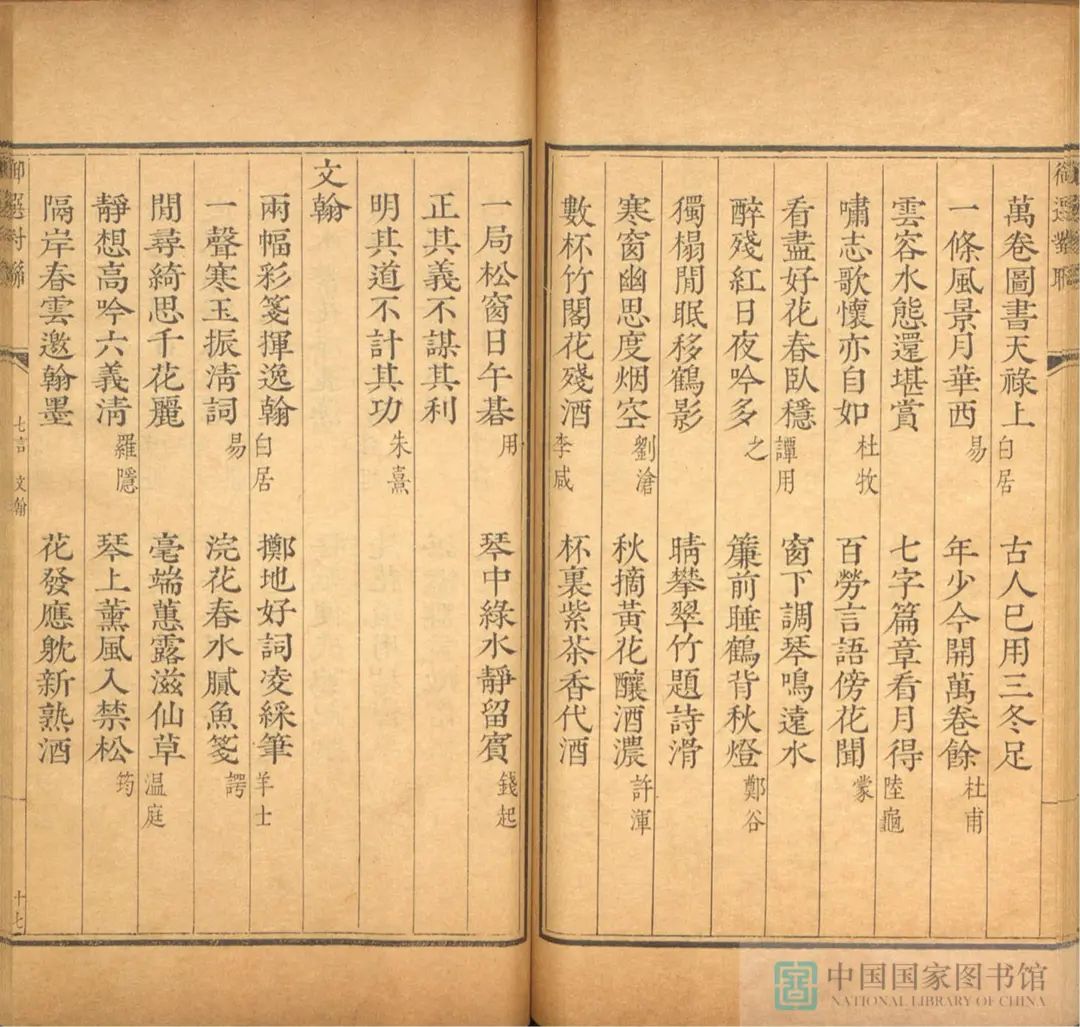 萬卷圖書天祿上 白居 古人已用三冬足
一條風景月華西 易 年少今開萬卷餘 杜甫
雲容水態還堪賞 七字篇章看月得 陸龜
嘯志歌懷亦自如 杜牧 百勞言語傍花聞 蒙
看盡好花春臥穩 譚用 窗下調琴鳴遠水
醉殘紅日夜吟多 之 簾前睡鶴背秋燈 鄭谷
獨榻閒眠移鶴影 晴攀翠竹題詩滑
寒窗幽思度烟空 劉滄 秋摘黃花釀酒濃 許渾
數杯竹閣花殘酒 李咸 杯裏紫茶香代酒
一局松窗日午碁 用 琴中綠水靜留賓 錢起
正其義不謀其利
明其道不計其功 朱熹
文翰
兩幅彩箋揮逸翰 白居 擲地好詞凌綵筆 羊士
一聲寒玉振淸詞 易 浣花春水膩魚箋 諤
閒尋綺思千花麗 毫端蕙露滋仙草 温庭
靜想高吟六義淸 羅隱 琴上薰風入禁松 筠
隔岸春雲邀翰墨 花發應躭新熟酒
御選對聯 七言 文翰 十七
中国国家图书馆
NATIONAL LIBRARY OF CHINA